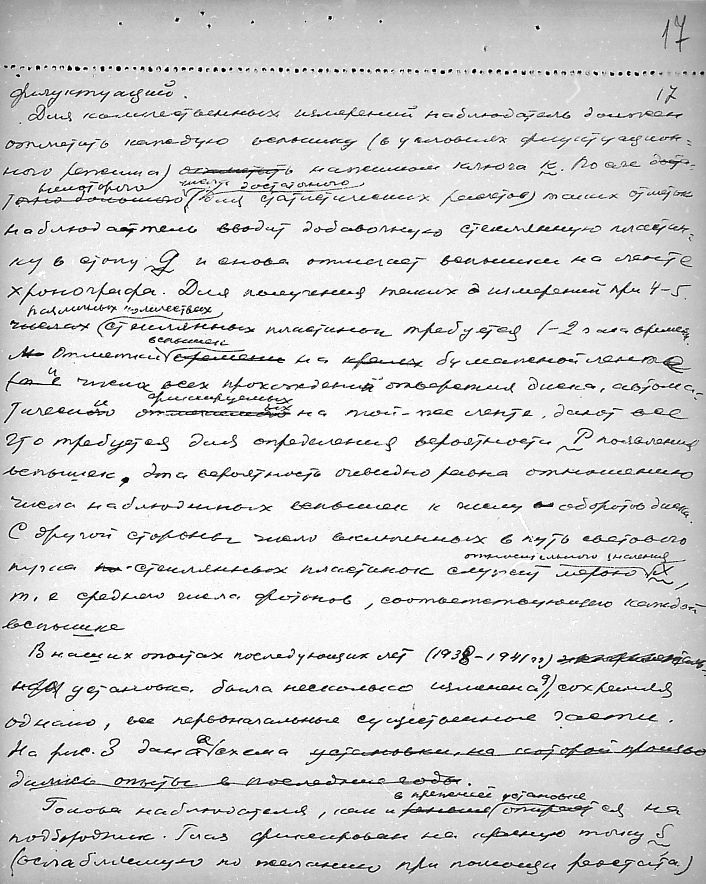 17
17
флуктуаций.
Для количественных измерений наблюдатель должен
отмечать каждую вспышку (в условиях флуктуацион-
ного режима) отмечать нажимом ключа к. После доста-
некоторого числа достаточного
точно большого (для статистических расчетов) таких отметок
наблюдатель вводит добавочную стеклянную пластин-
ку в стопу g и снова отмечает вспышки на ленте
хронографа. Для получения таких измерений при 4-5
различных количествах
числах стеклянных пластинок требуется 1-2 часа времени.
вспышек
Отметки времени на бумажной ленте
и числа всех прохождений отверстия диска, автома-
фиксируемых
тически на той-же ленте, дают все
что требуется для определения вероятности P появления
вспышек, эта вероятность очевидно равна отношению
числа наблюденных вспышек к числу оборотов диска.
С другой стороны число включенных в путь светового
относительного значения
пучка стеклянных пластинок служит мерою x,
т. е среднего числа фотонов, соответствующего каждой
вспышке
В наших опытах последующих лет (1938-1941 гг)
установка была несколько изменена 9), сохраняя
однако, все первоначальные существенные части.
На рис. 3 дана схема установки, на которой произво
дились опыты в последние годы.
в прежней установке
Голова наблюдателя, как и раньше опирается на
подбородник. Глаз фиксирован на красную точку S
(ослабляемую по желанию при помощи реостата)